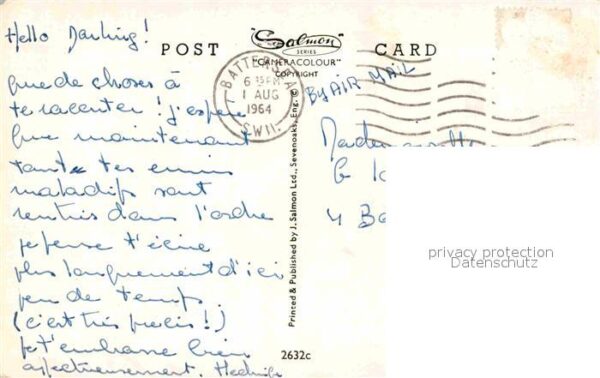 Hello Darling!
POST "Salmon" CARD
SERIES
"CAMERACOLOUR"
COPYRIGHT
BATTERSEA
6 15 PM
1 AUG
1964
S.W.11.
BY AIR MAIL
que de choses à
te raconter! j'espère
que maintenant
tout tes ennuis
maladifs sont
rentrés dans l'ordre
je pense t'écrire
plus longuement d'ici
peu de temps.
(c'est très précis!)
je t'embrasse bien
affectueusement.
Mademoiselle
4 Ba
Printed & Published by J. Salmon Ltd., Sevenoaks, Eng. ©
2632c
privacy protection
Datenschutz